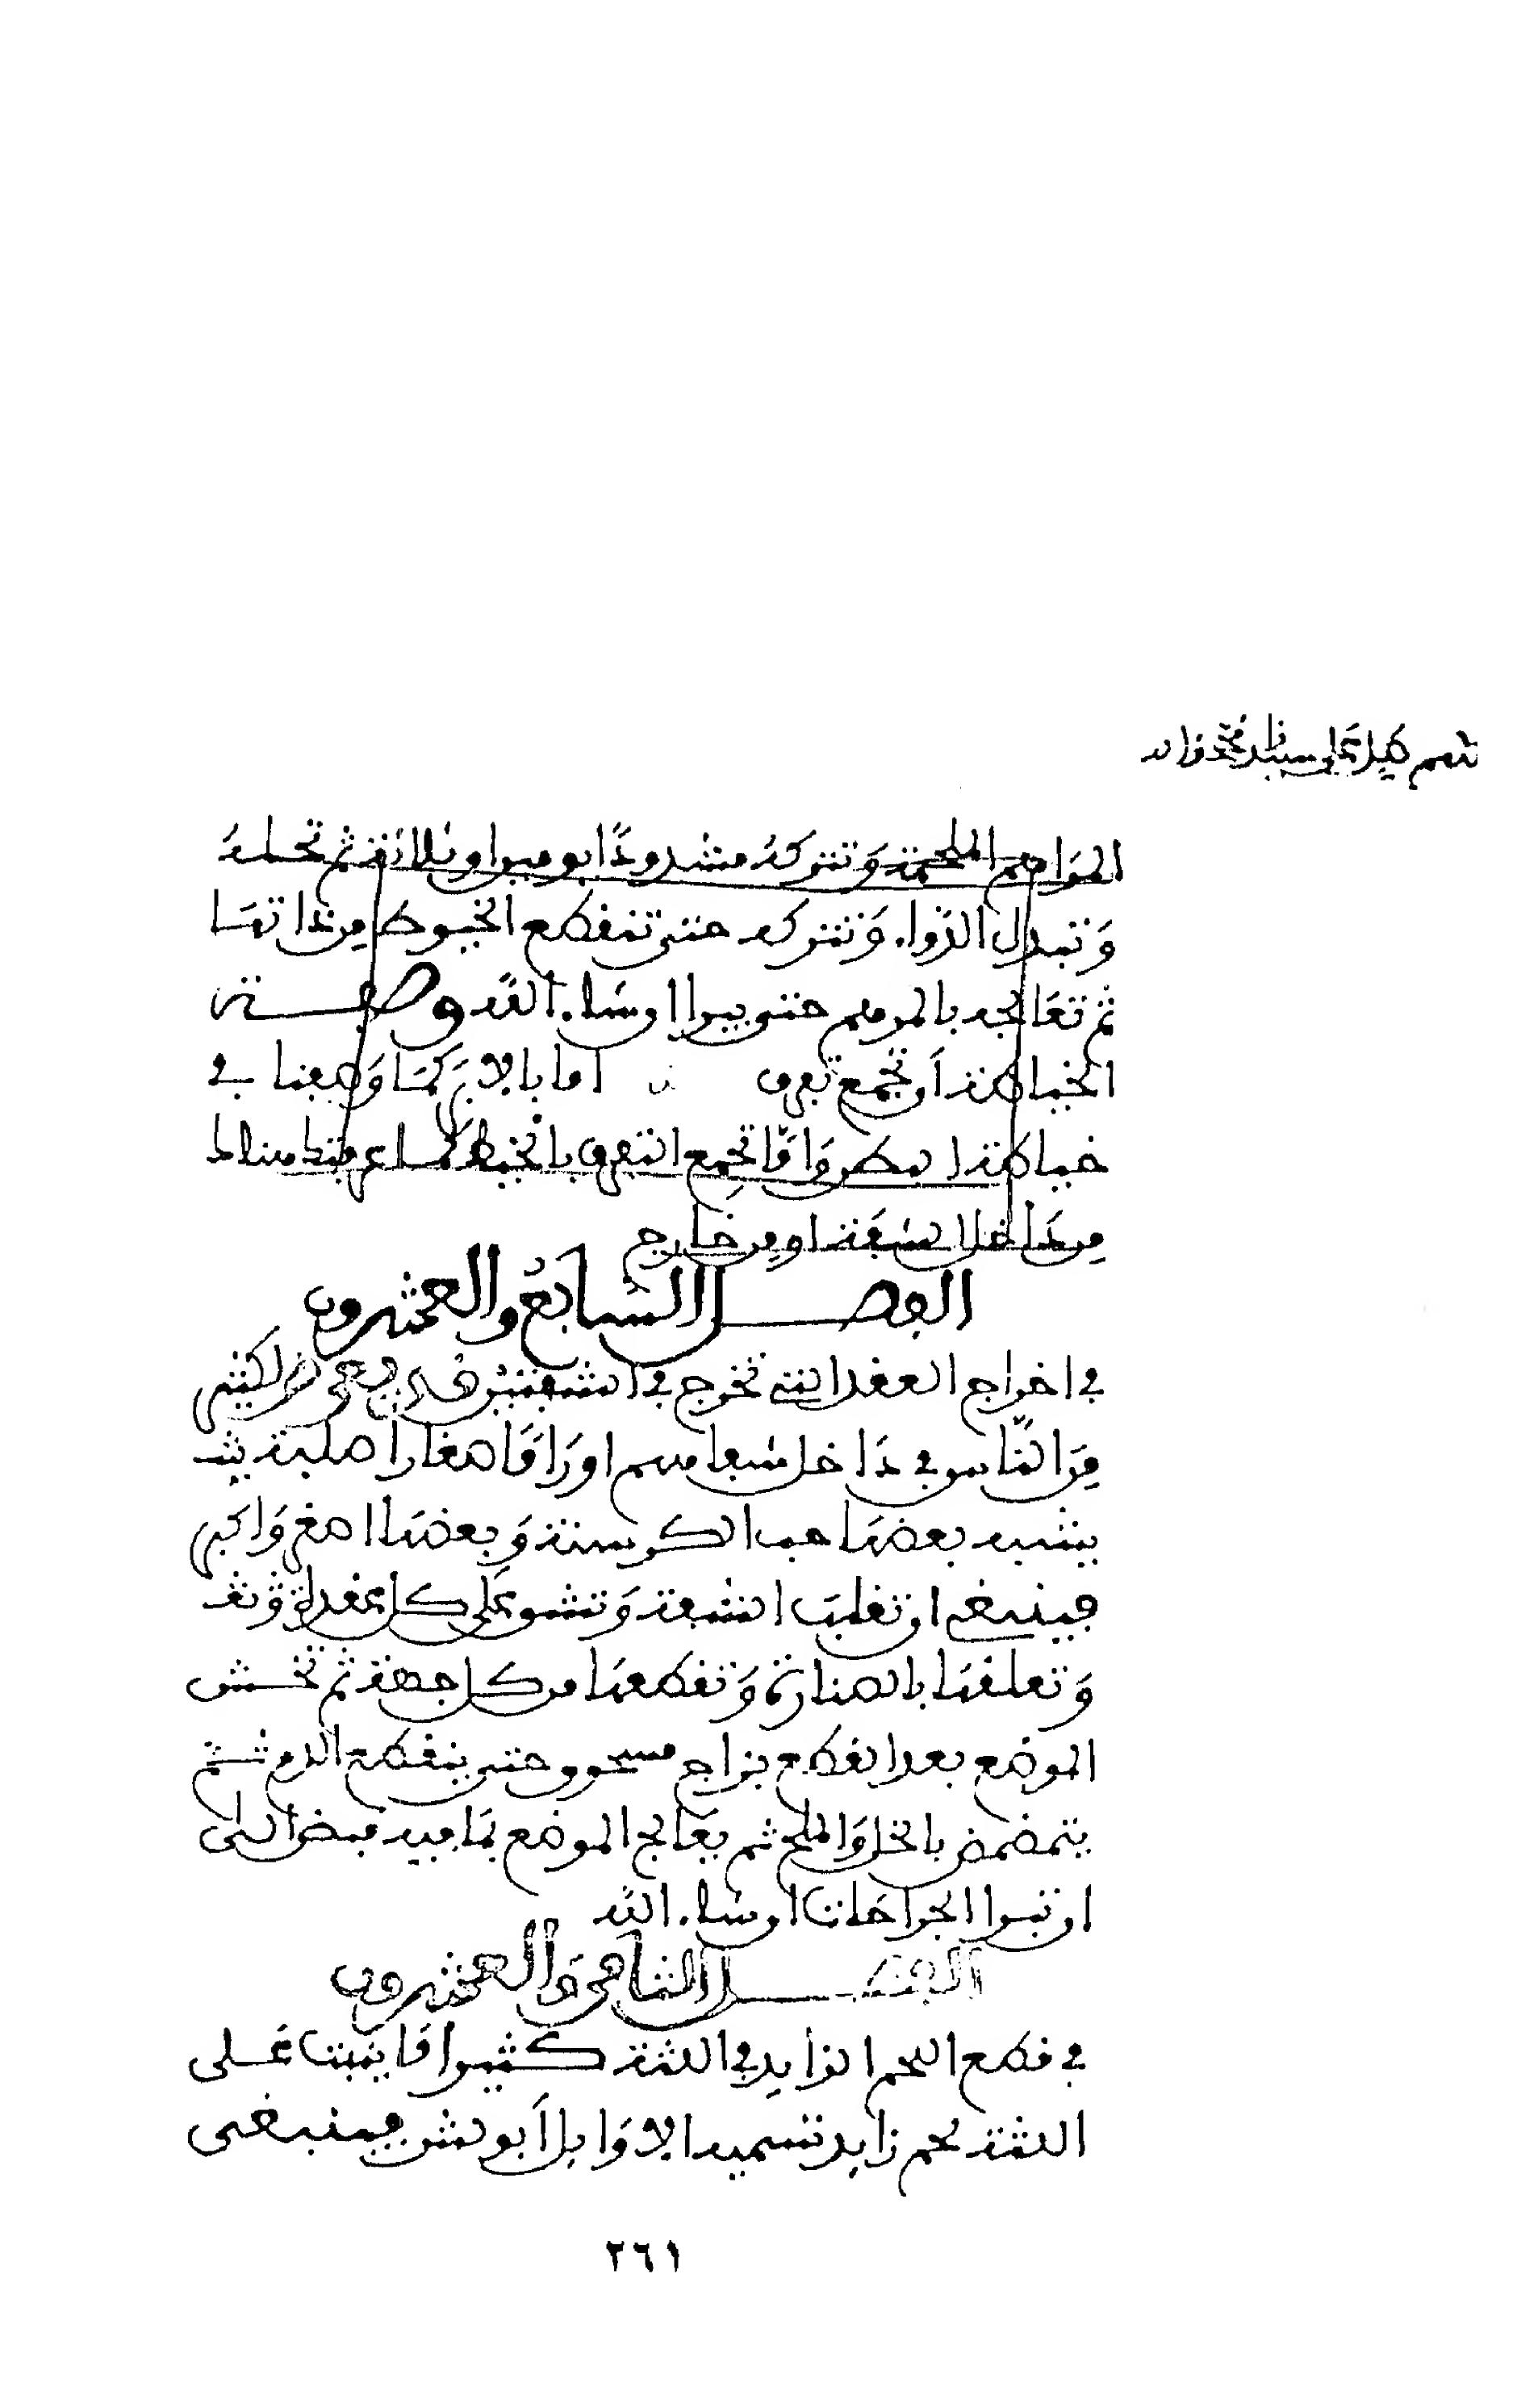 المراهم الملحمة وتتركه مشدودًا يومين او ثلاثة ثم تحله
وتبدل الدواء وتتركه حتى تنقطع الخيوط من ذاتها
ثم تعالجه بالمرهم حتى يبرا ان شاء الله وصفة
الخياطة ان تجمع تفرق اما بالابر كما وصفنا في
خياطة البطن واما تجمع التفرق بالخيط كما عرفتك هناك
من داخل الشفة او من خارج
الفصل السابع والعشرون
في اخراج العقد التي تخرج في الشفتين قد يعرض لكثير
من الناس في داخل شفاههم اوراما صغارا صلبة يشـ
يشبه بعضها حب الكرسنة وبعضها اصغر واكبر
فينبغي ان تقلب الشفة وتشق على كل عقدة وتـ
وتعلقها بالصنارة وتقطعها من كل جهة ثم تحش
الموضع بعد القطع بزاج مسحوق حتى ينقطع الدم ثم
يتمضمض بالخل والملح ثم يعالج الموضع بما فيه قبض الى
ان تبرا الجراحات ان شاء الله
الفصل الثامن والعشرون
في قطع اللحم الزايد في اللثة كثيرا ما ينبت على
اللثة لحم زايد تسميه الاوايل ابولس فينبغي
٢٦١